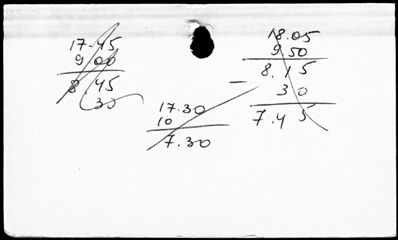 17.45
9 00
8.45
30
17.30
10
7.30
18.05
9.50
8.15
- 30
7.45